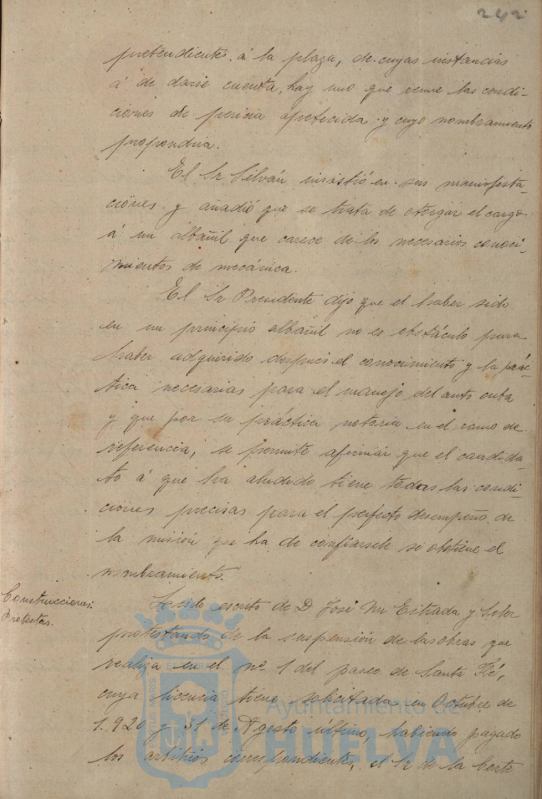 242
pretendientes á la plaza, de cuyas instancias
á de darse cuenta, hay uno que reune las condi-
ciones de pericia apetecida y cuyo nombramiento
propondria.
El Sr Cilván insistió en sus manifesta-
ciones y añadió que se trata de otorgar el cargo
á un albañil que carece de los necesarios conoci-
mientos de mecánica.
El Sr Presidente dijo que el haber sido
en un principio albañil no es obstáculo para
haber adquirido despues el conocimiento y la prác-
tica necesarias para el manejo del auto cuba
y que por su práctica notoria en el ramo de
referencia, se permite afirmar que el candida-
to á que ha aludido tiene todas las condi-
ciones precisas para el perfecto desempeño de
la mision que ha de confiarsele si obtiene el
nombramiento.
Construcciones:
Protestas.
Leido escrito de D José Mª Estrada y Soler
protestando de la suspensión de las obras que
realiza en el nº 1 del paseo de Santa Fé,
cuya licencia tiene solicitada en Octubre de
1.920 y 31 de Agosto último, habiendo pagado
los arbitrios correspondientes, el Sr de la Corte
Ayuntamiento de
HUELVA